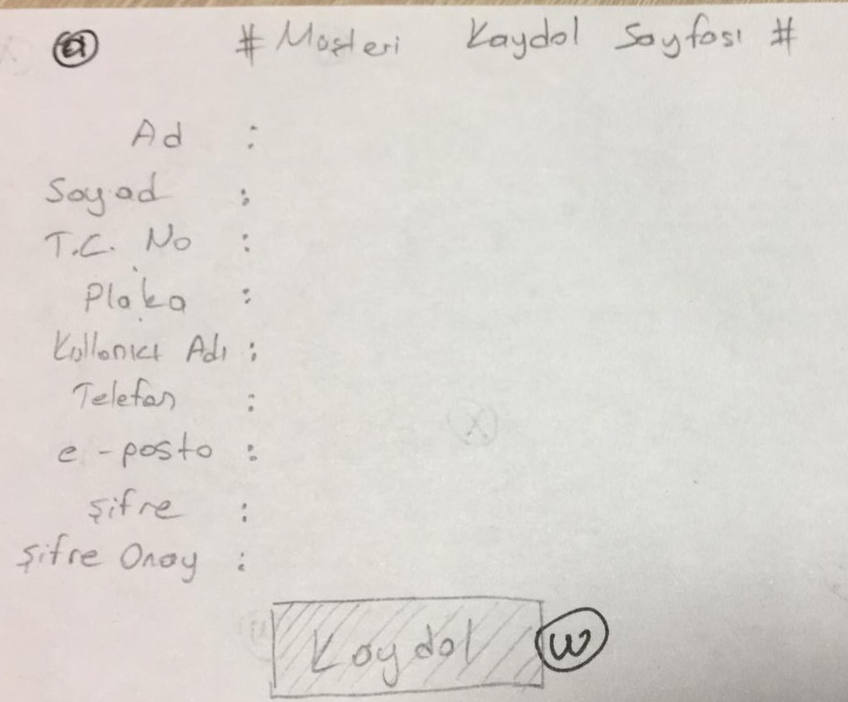 a # Müşteri Kaydol Sayfası #
Ad :
Soyad :
T.C. No :
Plaka :
Kullanıcı Adı :
Telefon :
e-posta :
Şifre :
Şifre Onay :
Kaydol w